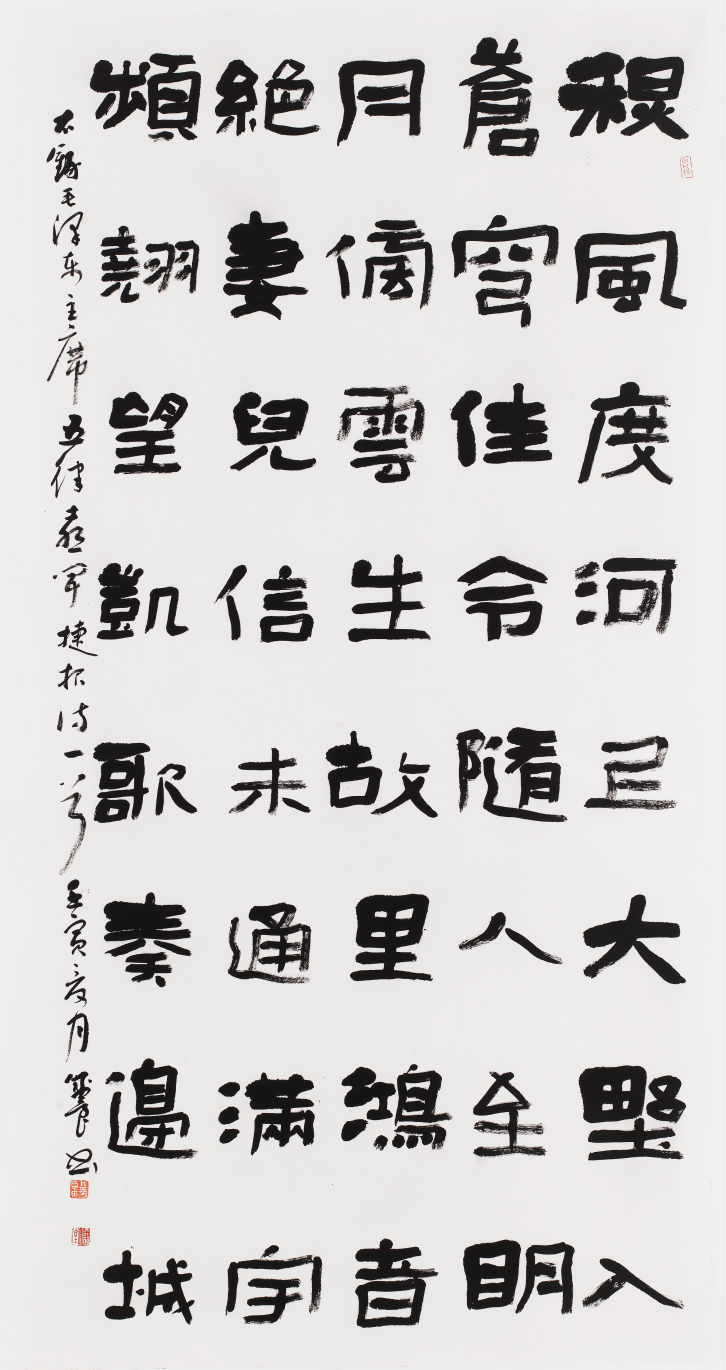 秋風度河上大野入
蒼穹佳令隨人至明
月傍雲生故里鴻音
絕妻兒信未通滿宇
頻翹望凱歌奏邊城
右錄毛泽东主席五律喜闻捷报诗一首 壬寅夏月 书